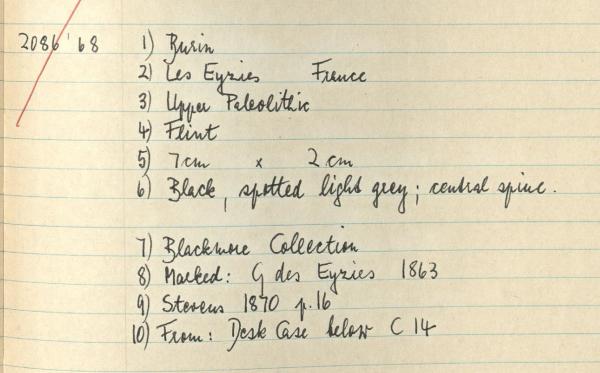 2086'68 1) Burin
2) Les Eyzies France
3) Upper Paleolithic
4) Flint
5) 7cm x 2cm
6) Black, spotted light grey; central spine.
7) Blackmore Collection
8) Marked: G des Eyzies 1863
9) Stevens 1870 p.16
10) From: Desk Case below C 14